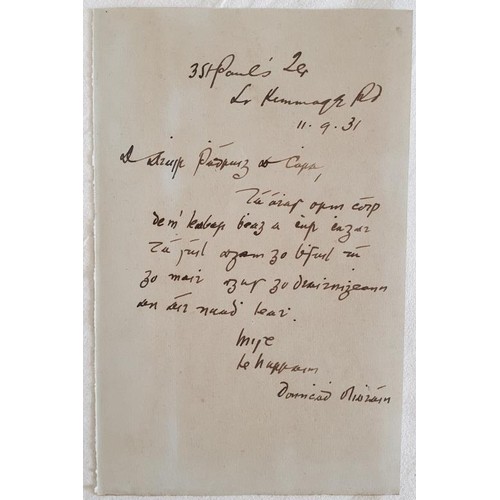 3 St Paul's Ter
Lr Kimmage Rd
11.9.31
A Aṫair Pádraig a Ċara,
Tá áṫas orm cóip
dem' leaḃar beag a ċur ċugat
Tá súil agam go ḃfuil tú
go maiṫ agus go dtaitniġeann
an áit nuaḋ leat.
Mise
le
Donnċaḋ Ó Liaṫáin